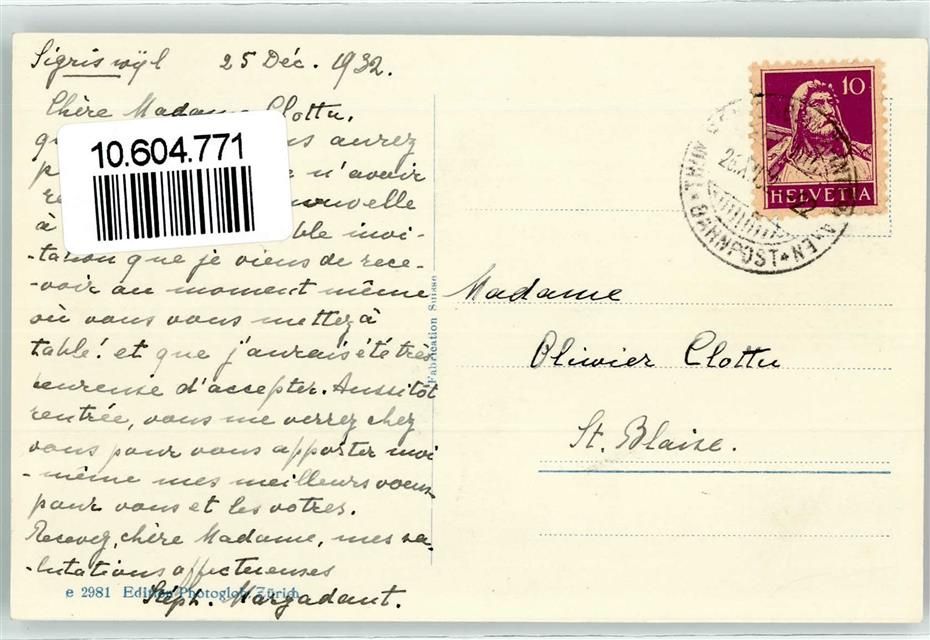 Sigriswyl 25 Déc. 1932.
Chère Madame Clottu,
aurez
n'avoir
nouvelle
à invi-
-tation que je viens de rece-
-voir au moment même
où vous vous mettez à
table! et que j'aurais été très
heureuse d'accepter. Aussitôt
rentrée, vous me verrez chez
vous pour vous apporter moi
-même mes meilleurs voeux
pour vous et les votres.
Recevez, chère Madame, mes sa-
-lutations affectueuses
Stéph. Margadant.
10.604.771
e 2981 Edition Photoglob Zürich
Fabrication Suisse
10
HELVETIA
BAHNPOST
Madame
Olivier Clottu
St. Blaise.